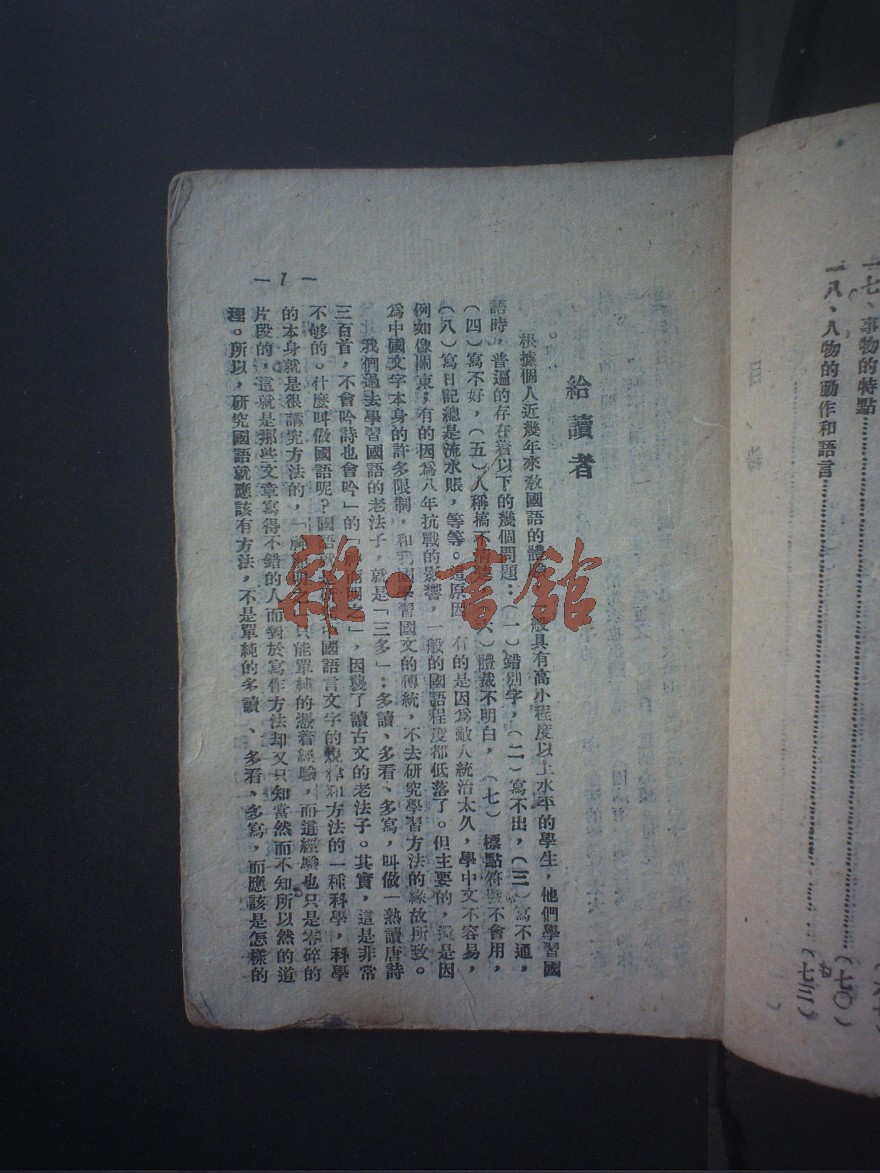 一七、事物的特點……(七〇)
一八、人物的動作和語言……(七三)
給讀者
根據個人近幾年來敎國語的體
般具有高小程度以上水平的學生，他們學習國
語時，普遍的存在着以下的幾個問題：（一）錯別字，（二）寫不出，（三）寫不通，
（四）寫不好，（五）人稱搞不淸楚，（六）體裁不明白，（七）標點符號不會用，
（八）寫日記總是流水賬，等等。這原因，有的是因爲敵人統治太久，學中文不容易，
例如像關東；有的因爲八年抗戰的影響，一般的國語程度都低落了。但主要的，還是因
爲中國文字本身的許多限制，和我國學習國文的傳統，不去研究學習方法的緣故所致。
我們過去學習國語的老法子，就是「三多」：多讀、多看、多寫，叫做「熟讀唐詩
三百首，不會吟詩也會吟」的「神而明之」，因襲了讀古文的老法子。其實，這是非常
不够的。什麼叫做國語呢？國語就是
中國語言文字的規律和方法的一種科學，科學
的本身就是很講究方法的，「神而明之」只能單純的憑着經驗，而這經驗也只是零碎的
片段的，這就是那些文章寫得不錯的人而對於寫作方法却又只知當然而不知所以然的道
理。所以，研究國語就應該有方法，不是單純的多讀、多看、多寫，而應該是怎樣的
— 1 —
雜·書館